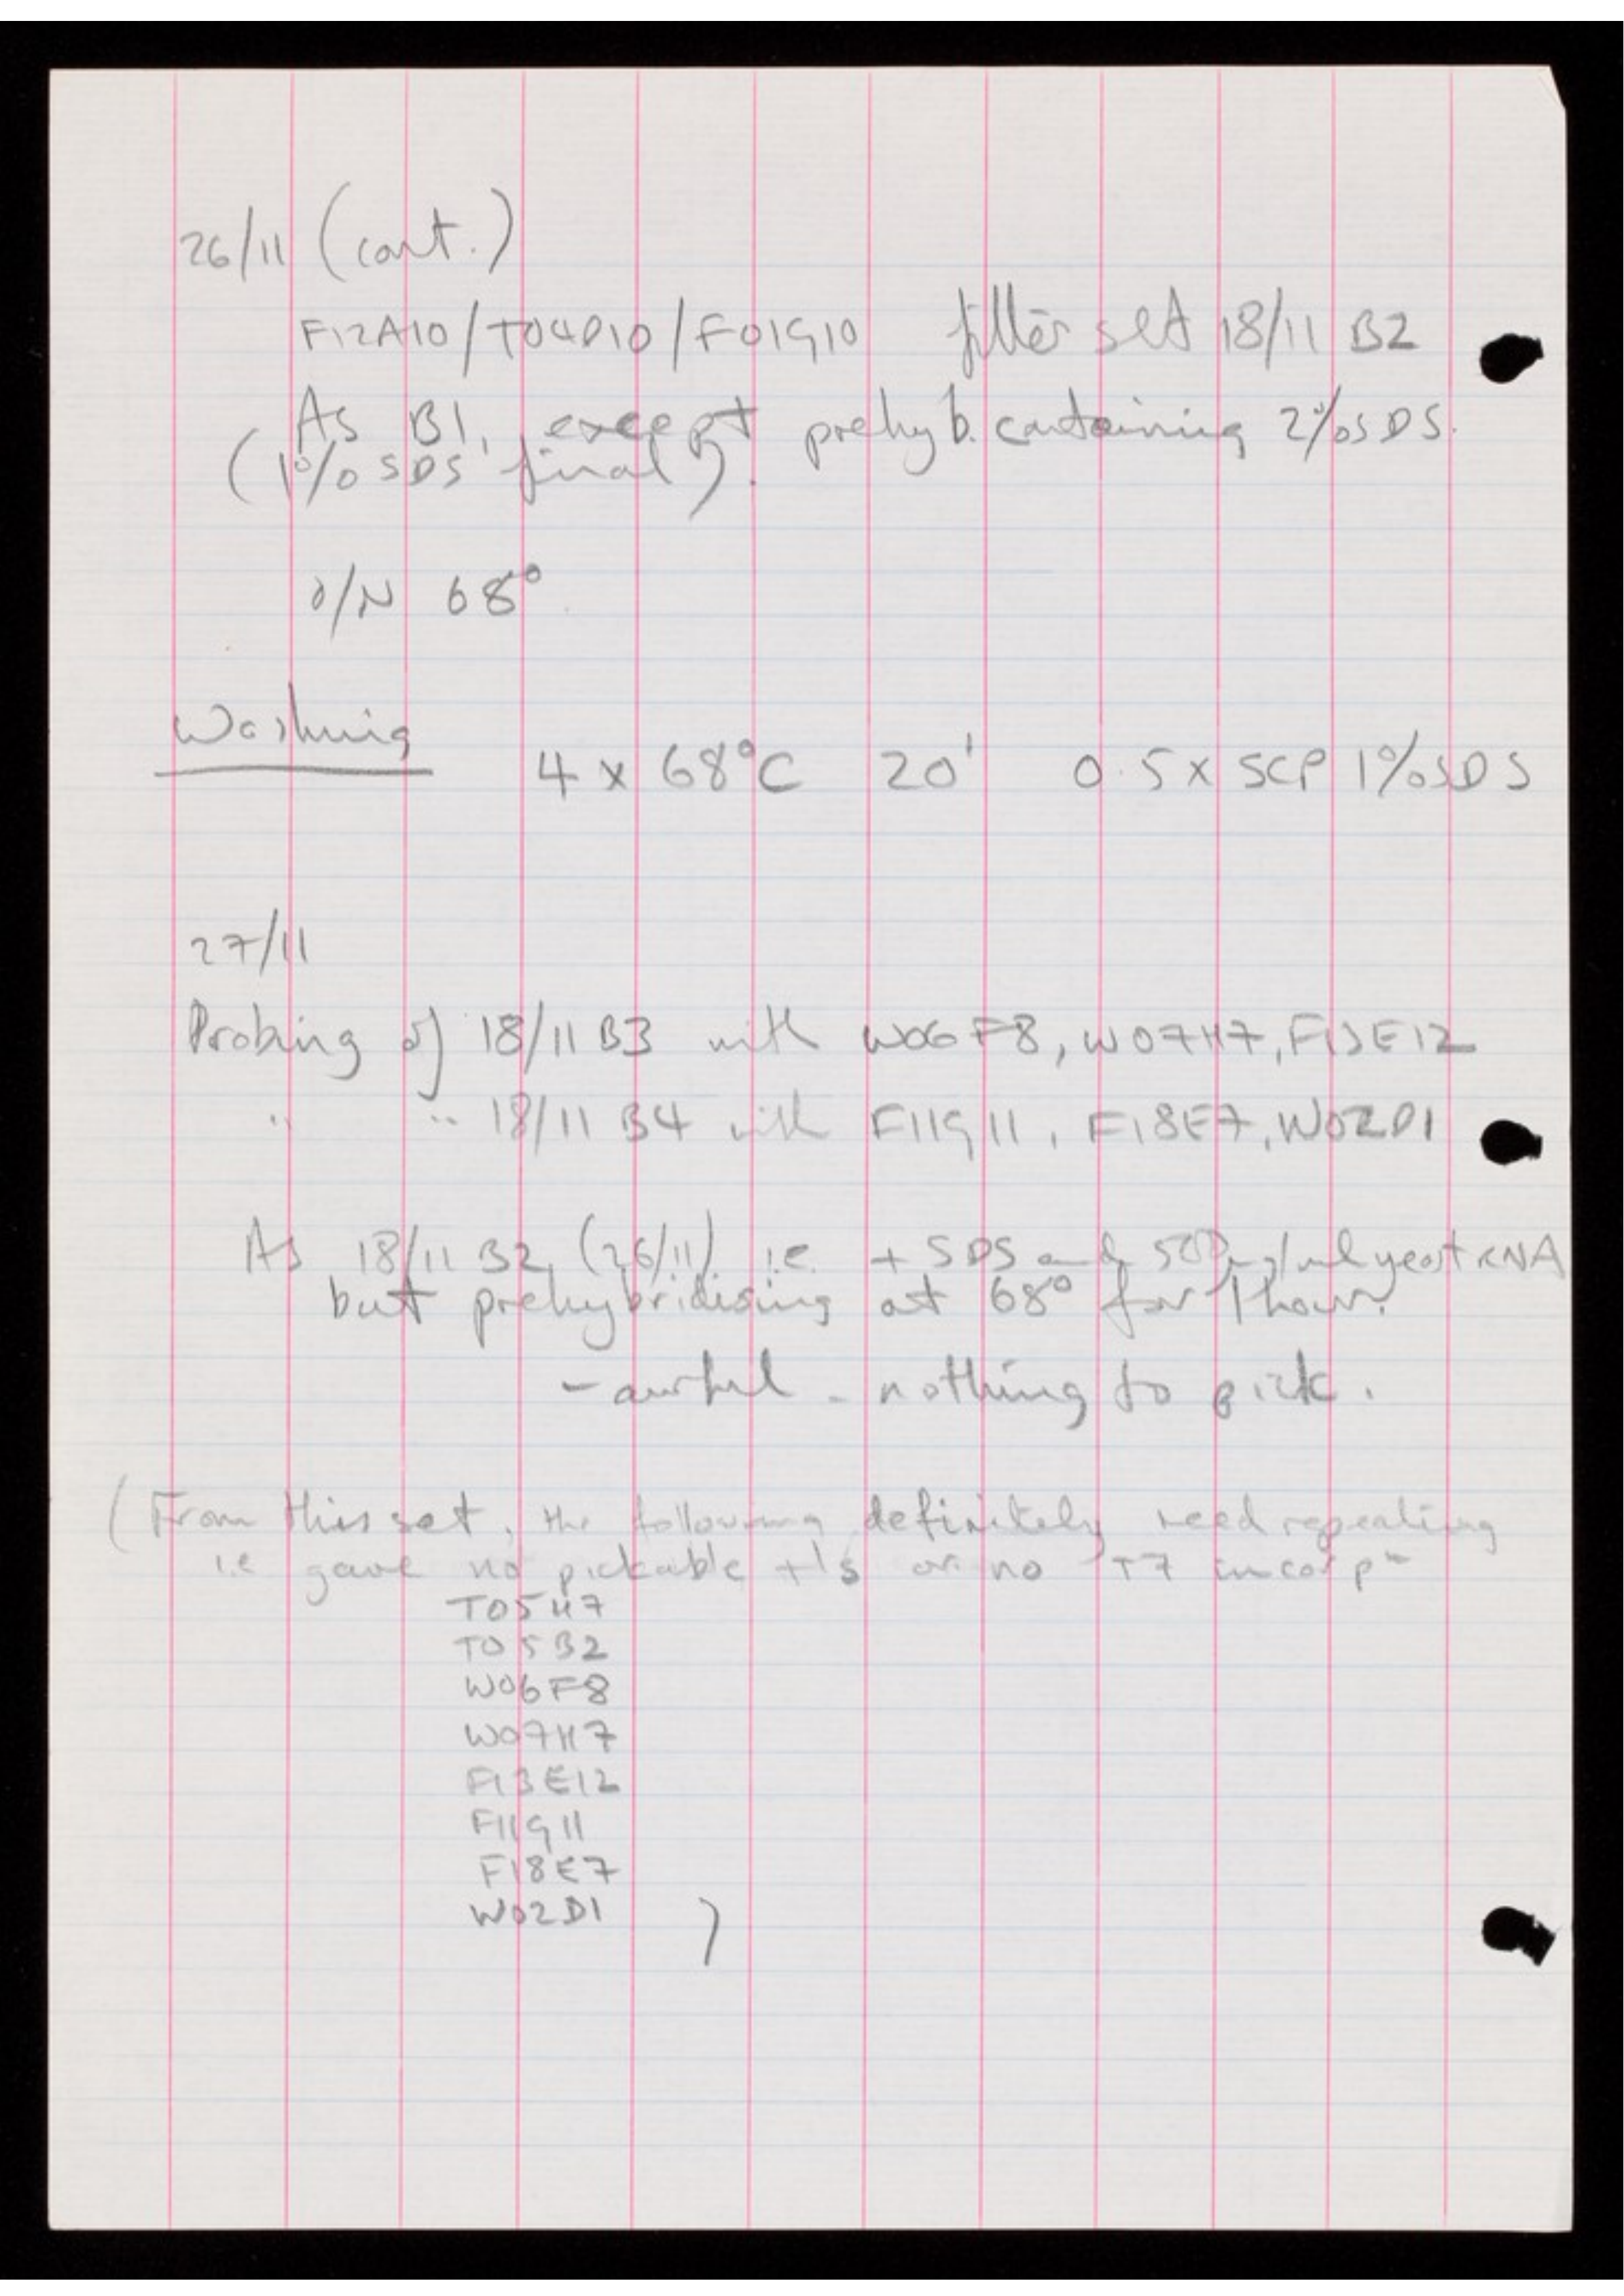 26/11 (cont.)
F12A10/T04D10/F01G10 filter set 18/11 B2
As B1, except prehyb. containing 2% SDS.
(1% SDS final).
O/N 68°
Washing 4 x 68°C 20' 0.5 x SCP 1% SDS
27/11
Probing of 18/11 B3 with W06F8, W07H7, F13E12
" " 18/11 B4 with F11G11, F18E7, W02D1
As 18/11 B2 (26/11) i.e. + SDS and 500µg/ml yeast RNA
but prehybridising at 68° for 1 hour.
- awful - nothing to pick.
(From this set, the following definitely need repeating
i.e gave no pickable +'s or no T7 incorpⁿ
T05H7
T05B2
W06F8
W07H7
F13E12
F11G11
F18E7
W02D1 )